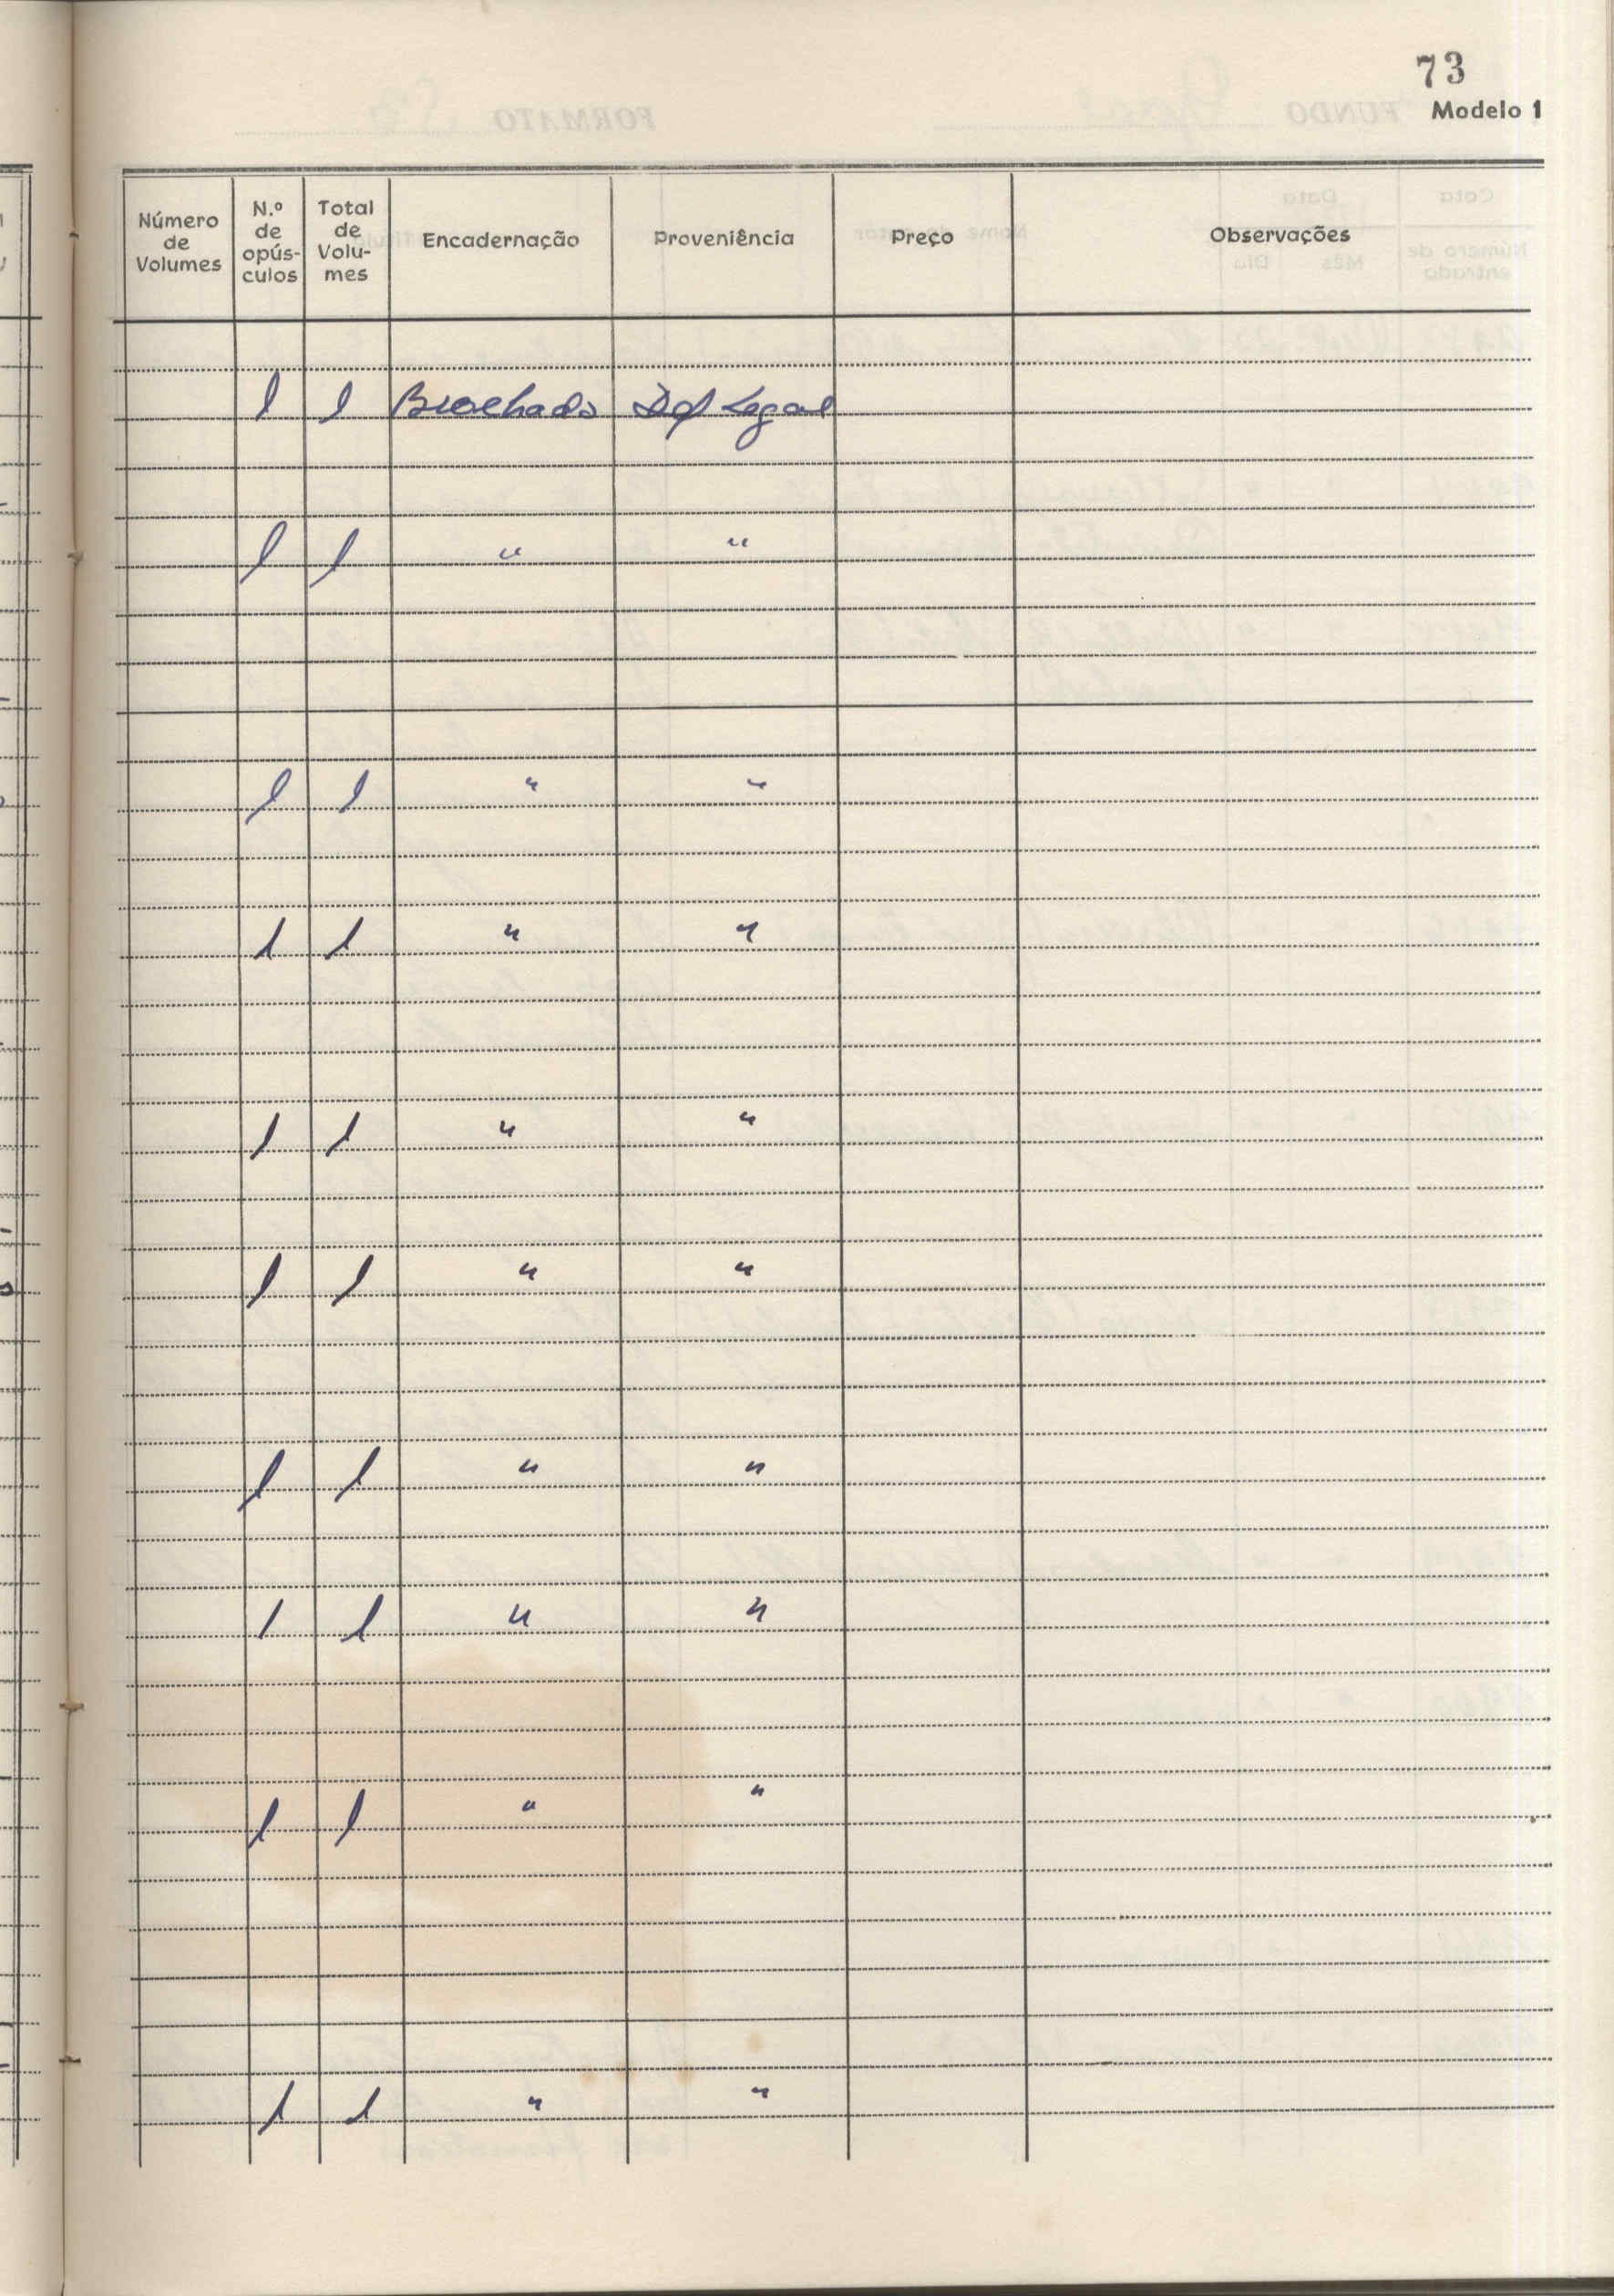 73
Modelo 1
Número de Volumes | N.º de opús-culos | Total de Volu-mes | Encadernação | Proveniência | Preço | Observações
1 1 Brochado Dep Legal
1 1 " "
1 1 " "
1 1 " "
1 1 " "
1 1 " "
1 1 " "
1 1 " "
1 1 " "
1 1 " "